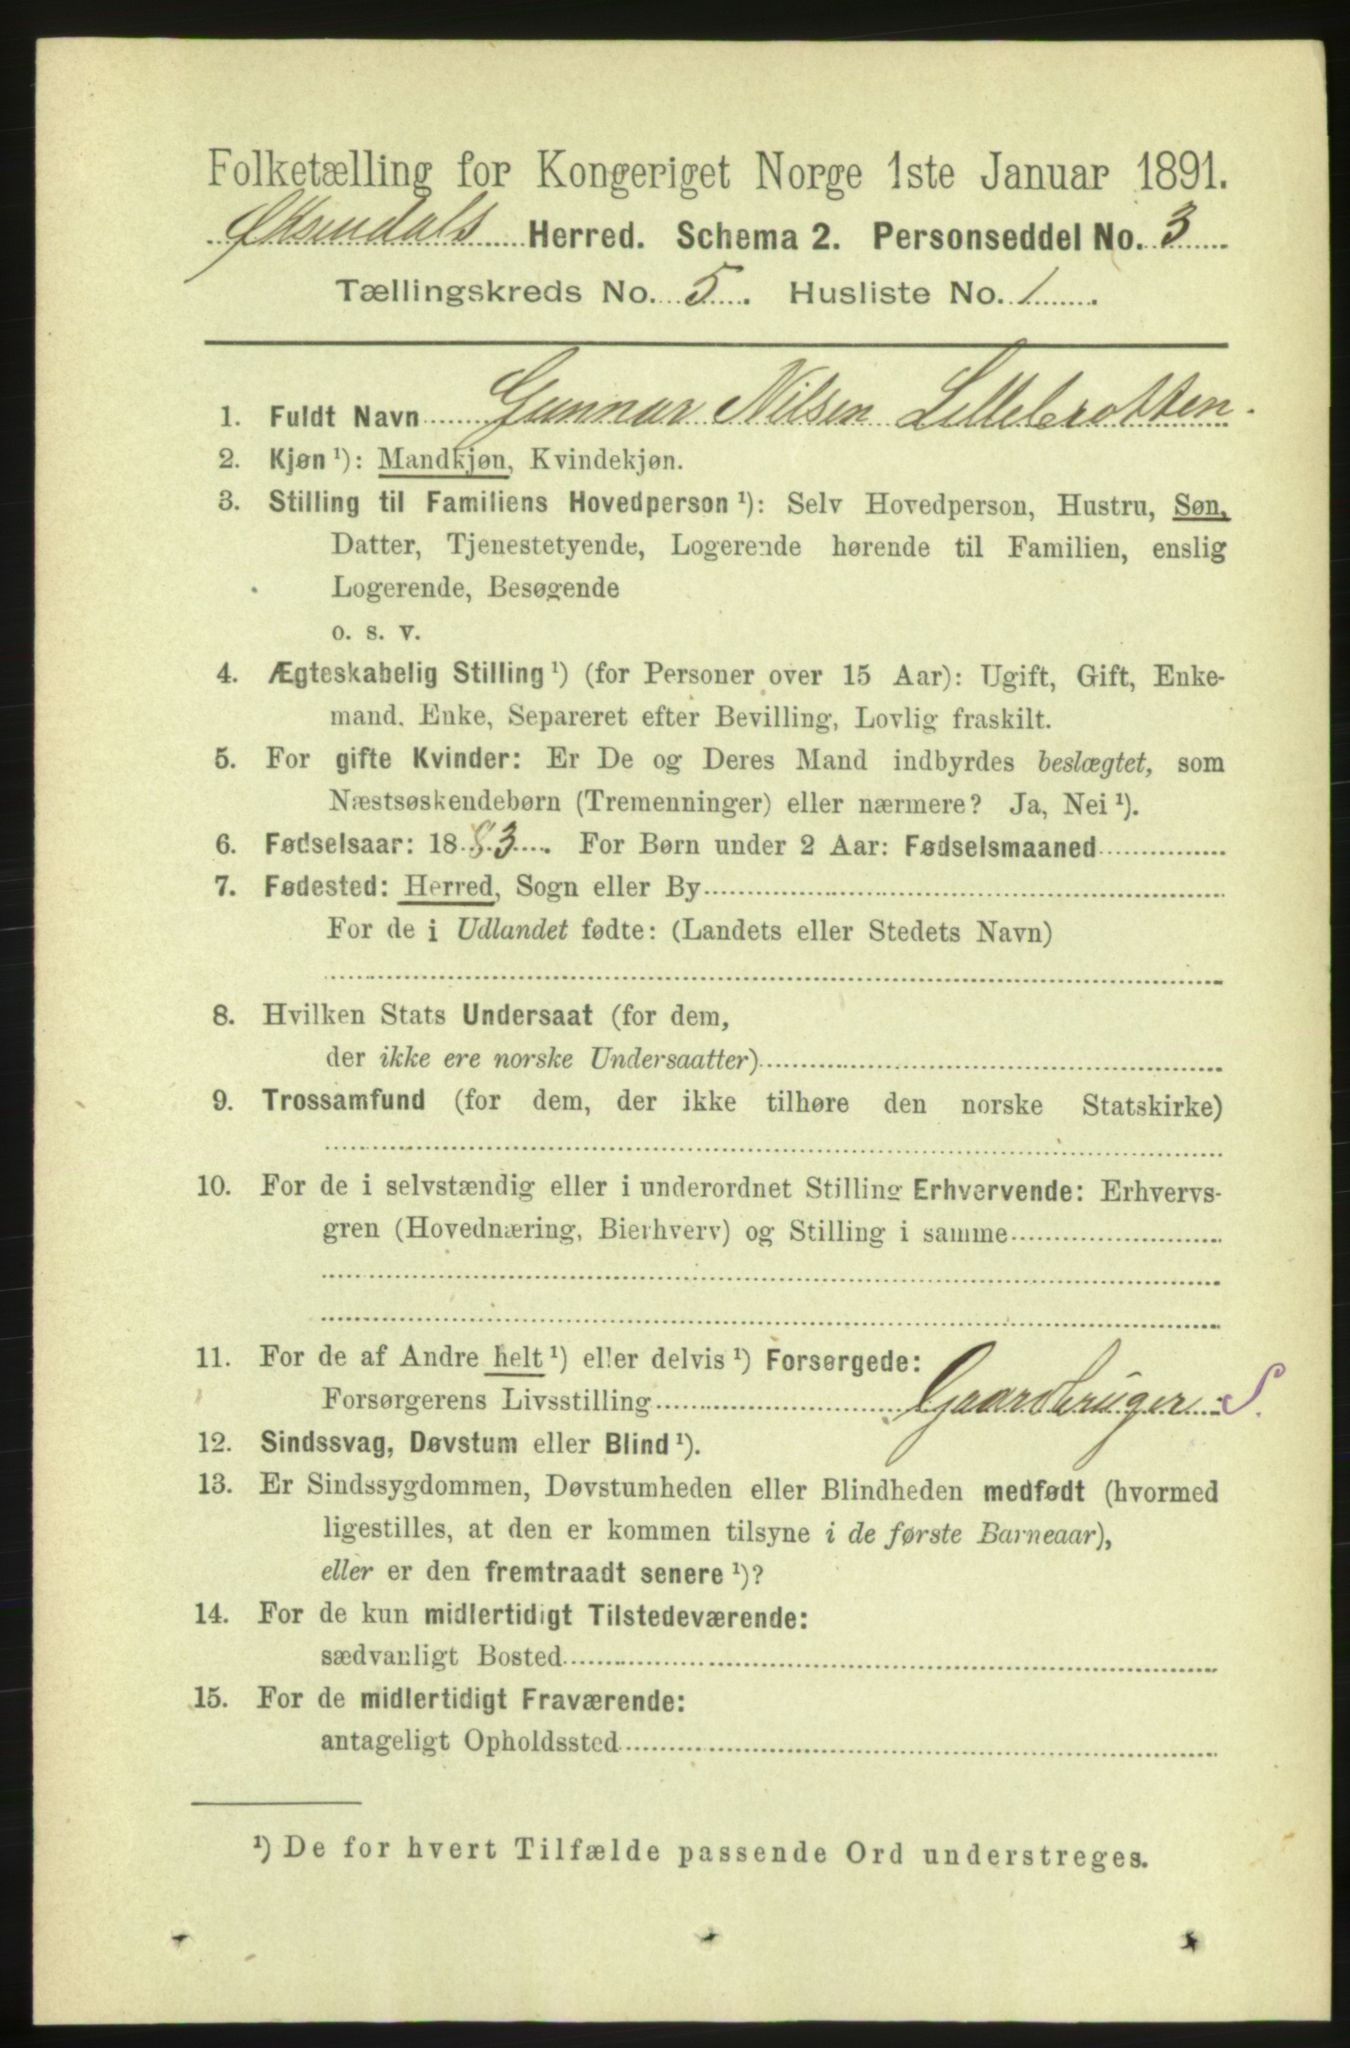 Folketælling for Kongeriget Norge 1ste Januar 1891.
Øksendals Herred. Schema 2. Personseddel No. 3
Tællingskreds No. 5. Husliste No. 1.
1. Fuldt Navn Gunnar Nilsen Lillebrotten.
2. Kjøn ¹): Mandkjøn, Kvindekjøn.
3. Stilling til Familiens Hovedperson ¹): Selv Hovedperson, Hustru, Søn,
Datter, Tjenestetyende, Logerende hørende til Familien, enslig
Logerende, Besøgende
o. s. v.
4. Ægteskabelig Stilling ¹) (for Personer over 15 Aar): Ugift, Gift, Enke-
mand, Enke, Separeret efter Bevilling, Lovlig fraskilt.
5. For gifte Kvinder: Er De og Deres Mand indbyrdes beslægtet, som
Næstsøskendebørn (Tremenninger) eller nærmere? Ja, Nei ¹).
6. Fødselsaar: 1883. For Børn under 2 Aar: Fødselsmaaned
7. Fødested: Herred, Sogn eller By
For de i Udlandet fødte: (Landets eller Stedets Navn)
8. Hvilken Stats Undersaat (for dem,
der ikke ere norske Undersaatter)
9. Trossamfund (for dem, der ikke tilhøre den norske Statskirke)
10. For de i selvstændig eller i underordnet Stilling Erhvervende: Erhvervs-
gren (Hovednæring, Bierhverv) og Stilling i samme
11. For de af Andre helt ¹) eller delvis ¹) Forsørgede:
Forsørgerens Livsstilling Gaardbruger S.
12. Sindssvag, Døvstum eller Blind ¹).
13. Er Sindssygdommen, Døvstumheden eller Blindheden medfødt (hvormed
ligestilles, at den er kommen tilsyne i de første Barneaar),
eller er den fremtraadt senere ¹)?
14. For de kun midlertidigt Tilstedeværende:
sædvanligt Bosted
15. For de midlertidigt Fraværende:
antageligt Opholdssted
¹) De for hvert Tilfælde passende Ord understreges.